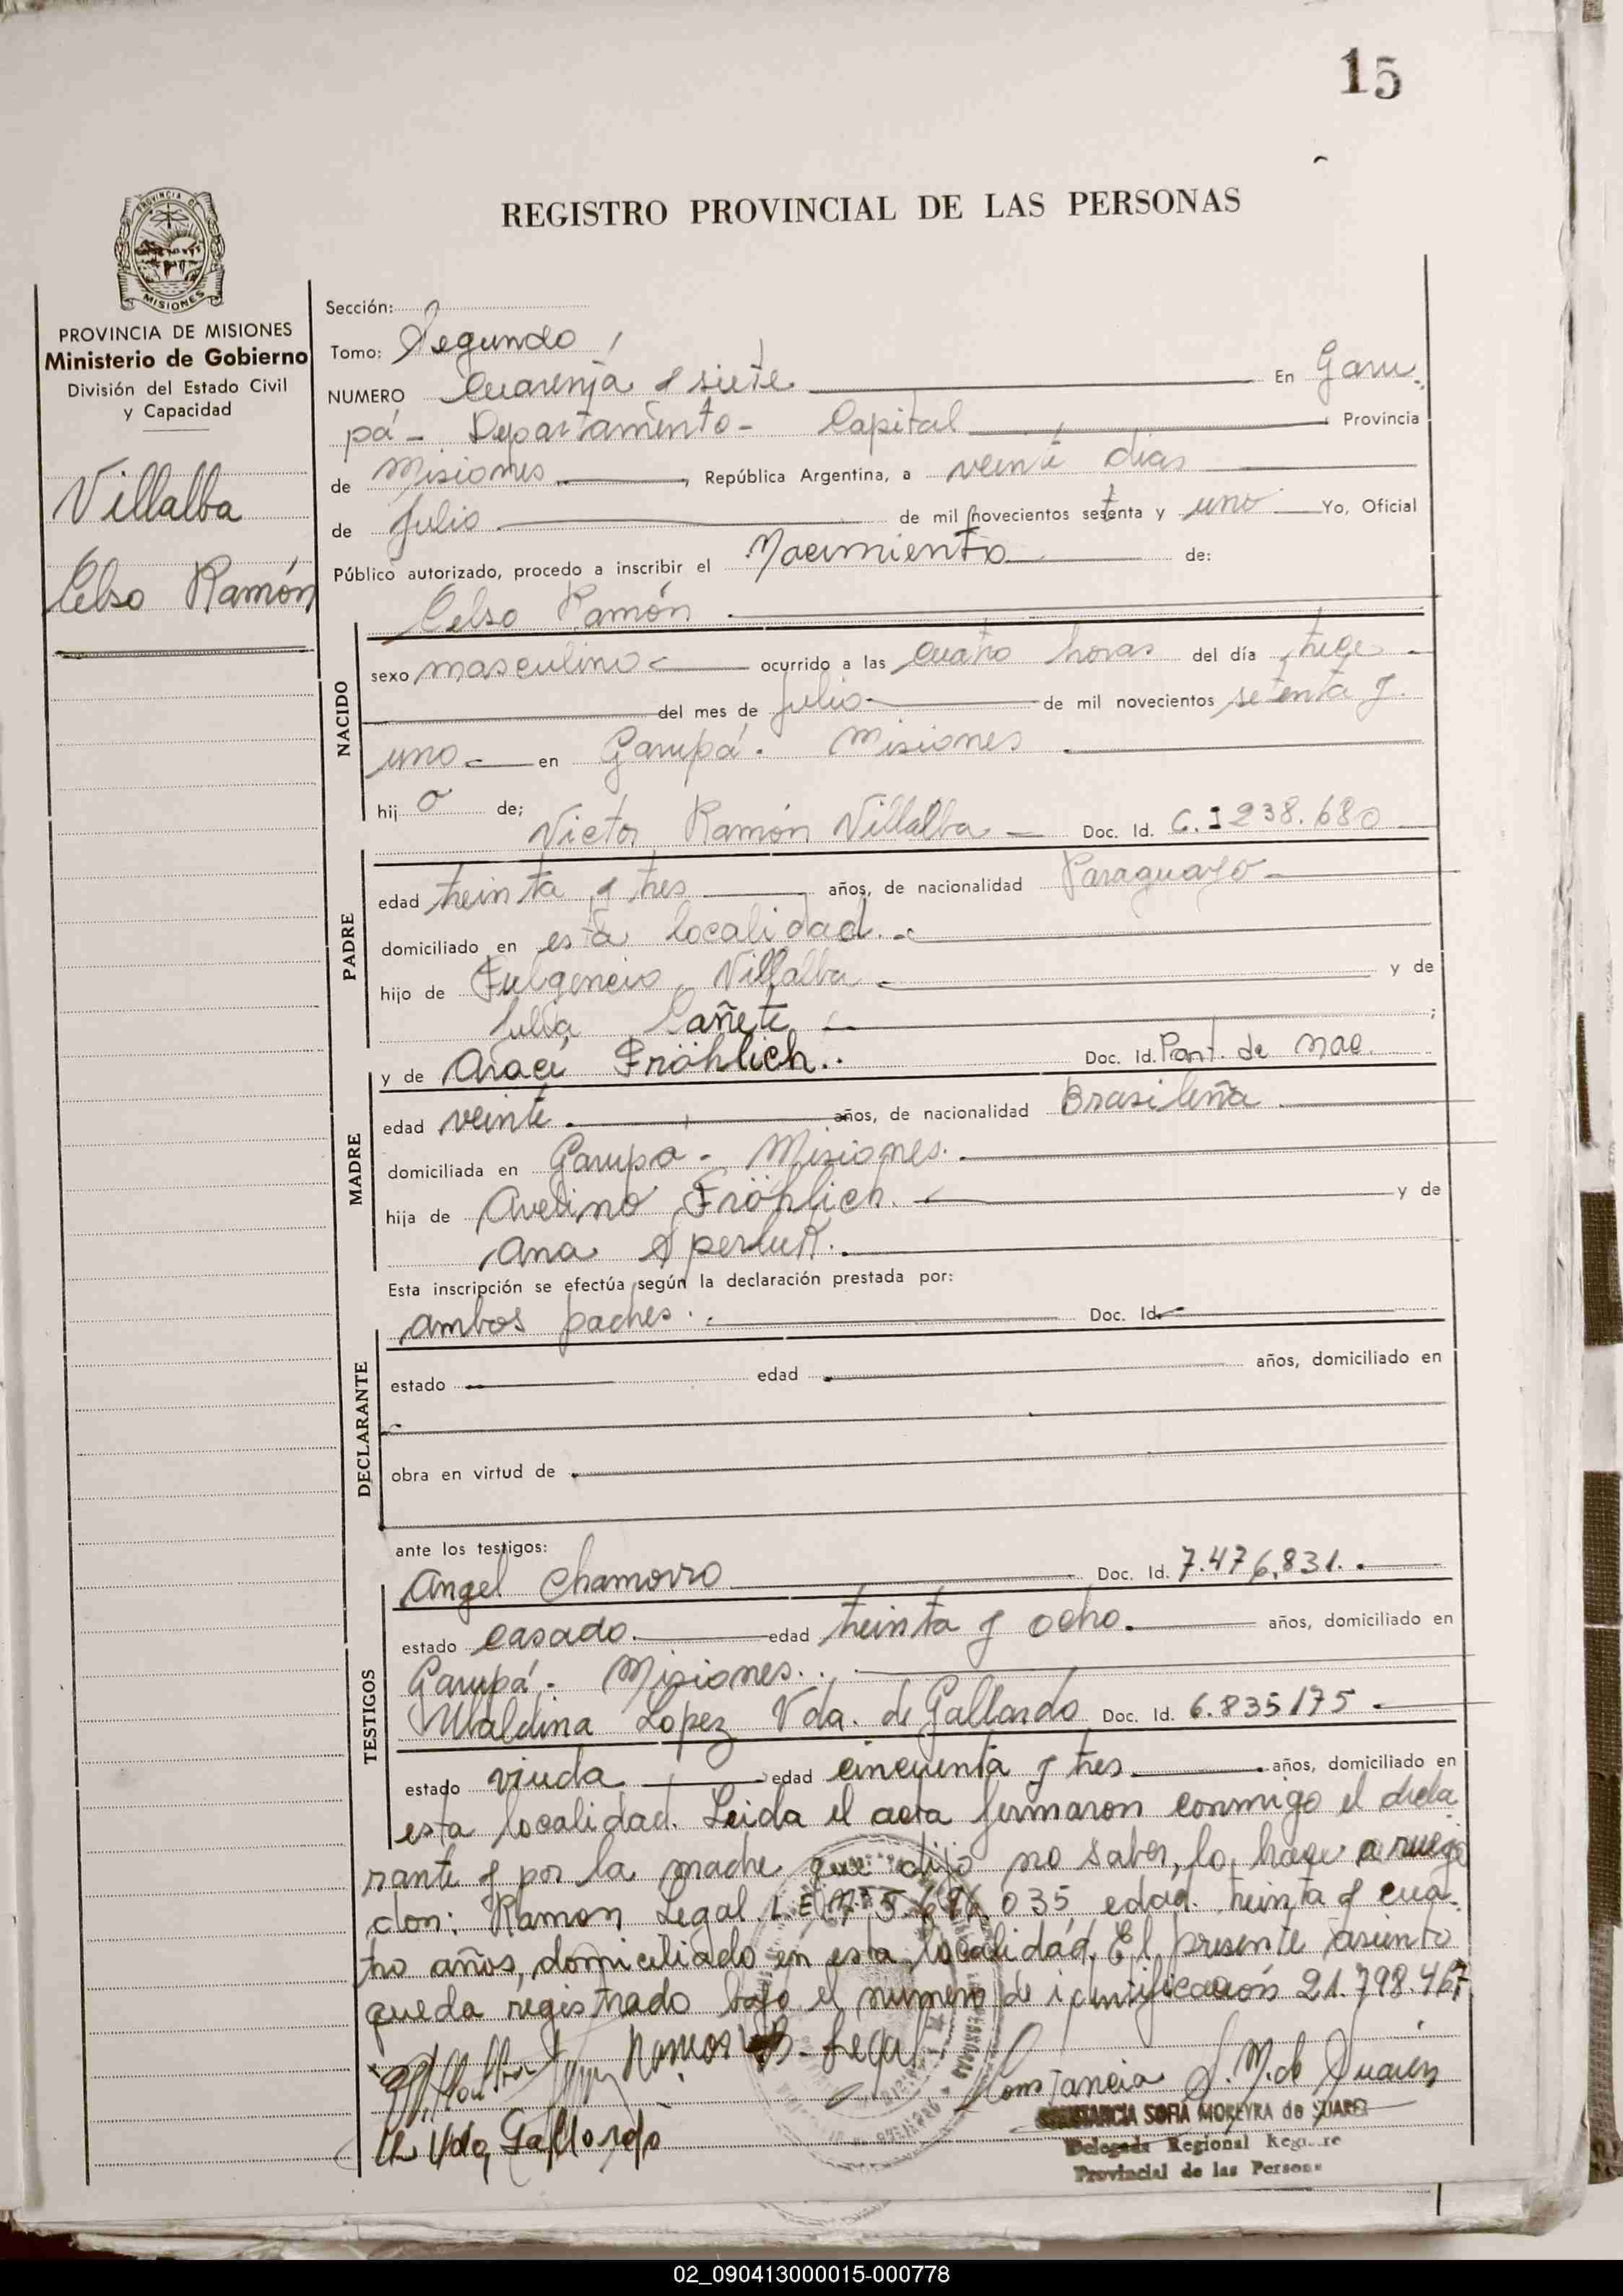 15
REGISTRO PROVINCIAL DE LAS PERSONAS
PROVINCIA DE
MISIONES
PROVINCIA DE MISIONES
Ministerio de Gobierno
División del Estado Civil
y Capacidad
Villalba
Celso Ramón
Sección:
Tomo: Segundo
NUMERO Cuarenta y siete En Garu-
pá - Departamento - Capital Provincia
de Misiones, República Argentina, a veinte días
de Julio de mil novecientos setenta y uno Yo, Oficial
Público autorizado, procedo a inscribir el Nacimiento de:
Celso Ramón
NACIDO
sexo masculino ocurrido a las cuatro horas del día trece
del mes de Julio de mil novecientos setenta y
uno en Garupá. Misiones
hijo de; Victor Ramón Villalba Doc. Id. C.I 238.680
PADRE
edad treinta y tres años, de nacionalidad Paraguayo
domiciliado en esta localidad.
hijo de Fulgencio Villalba y de
Julia Cañete ;
y de Araci Fröhlich. Doc. Id. Part. de nac.
MADRE
edad veinte años, de nacionalidad Brasileña
domiciliada en Garupa - Misiones.
hija de Avelino Fröhlich. y de
Ana
Esta inscripción se efectúa según la declaración prestada por:
ambos padres. Doc. Id.
DECLARANTE
estado edad años, domiciliado en
obra en virtud de
ante los testigos:
Angel Chamorro Doc. Id. 7.476,831.
TESTIGOS
estado casado. edad treinta y ocho. años, domiciliado en
Garupá - Misiones.
Ubaldina Lopez Vda. de Gallardo Doc. Id. 6.835175
estado viuda edad cincuenta y tres años, domiciliado en
esta localidad. Leida el acta firmaron conmigo el decla
rante y por la madre que dijo no saber, lo hace a ruego
don: Ramon Legal L.E 035 edad. treinta y cua-
tro años, domiciliado en esta localidad. El presente asiento
queda registrado bajo el número de identificación 21.798.467
Ramon B. Legal
Constancia S. M. de Suarez
Vda Gallardo
CONSTANCIA SOFIA MOREYRA de SUAREZ
Delegada Regional
Provincial de las
02_090413000015-000778